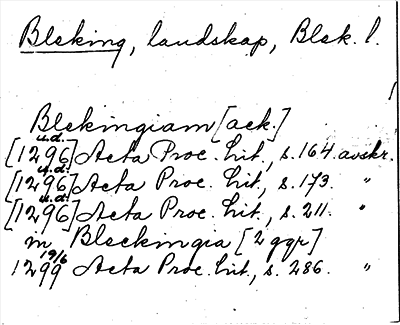 Bleking, landskap, Blek. l.
Blekingiam [ack.]
u.d.
[1296] Acta Proc. Lit., s. 164 avskr.
u.d.
[1296] Acta Proc. Lit., s. 173. "
u.d.
[1296] Acta Proc. Lit., s. 211. "
in Bleckingia [2 ggr]
19/6
1299 Acta Proc. Lit., s. 286. "